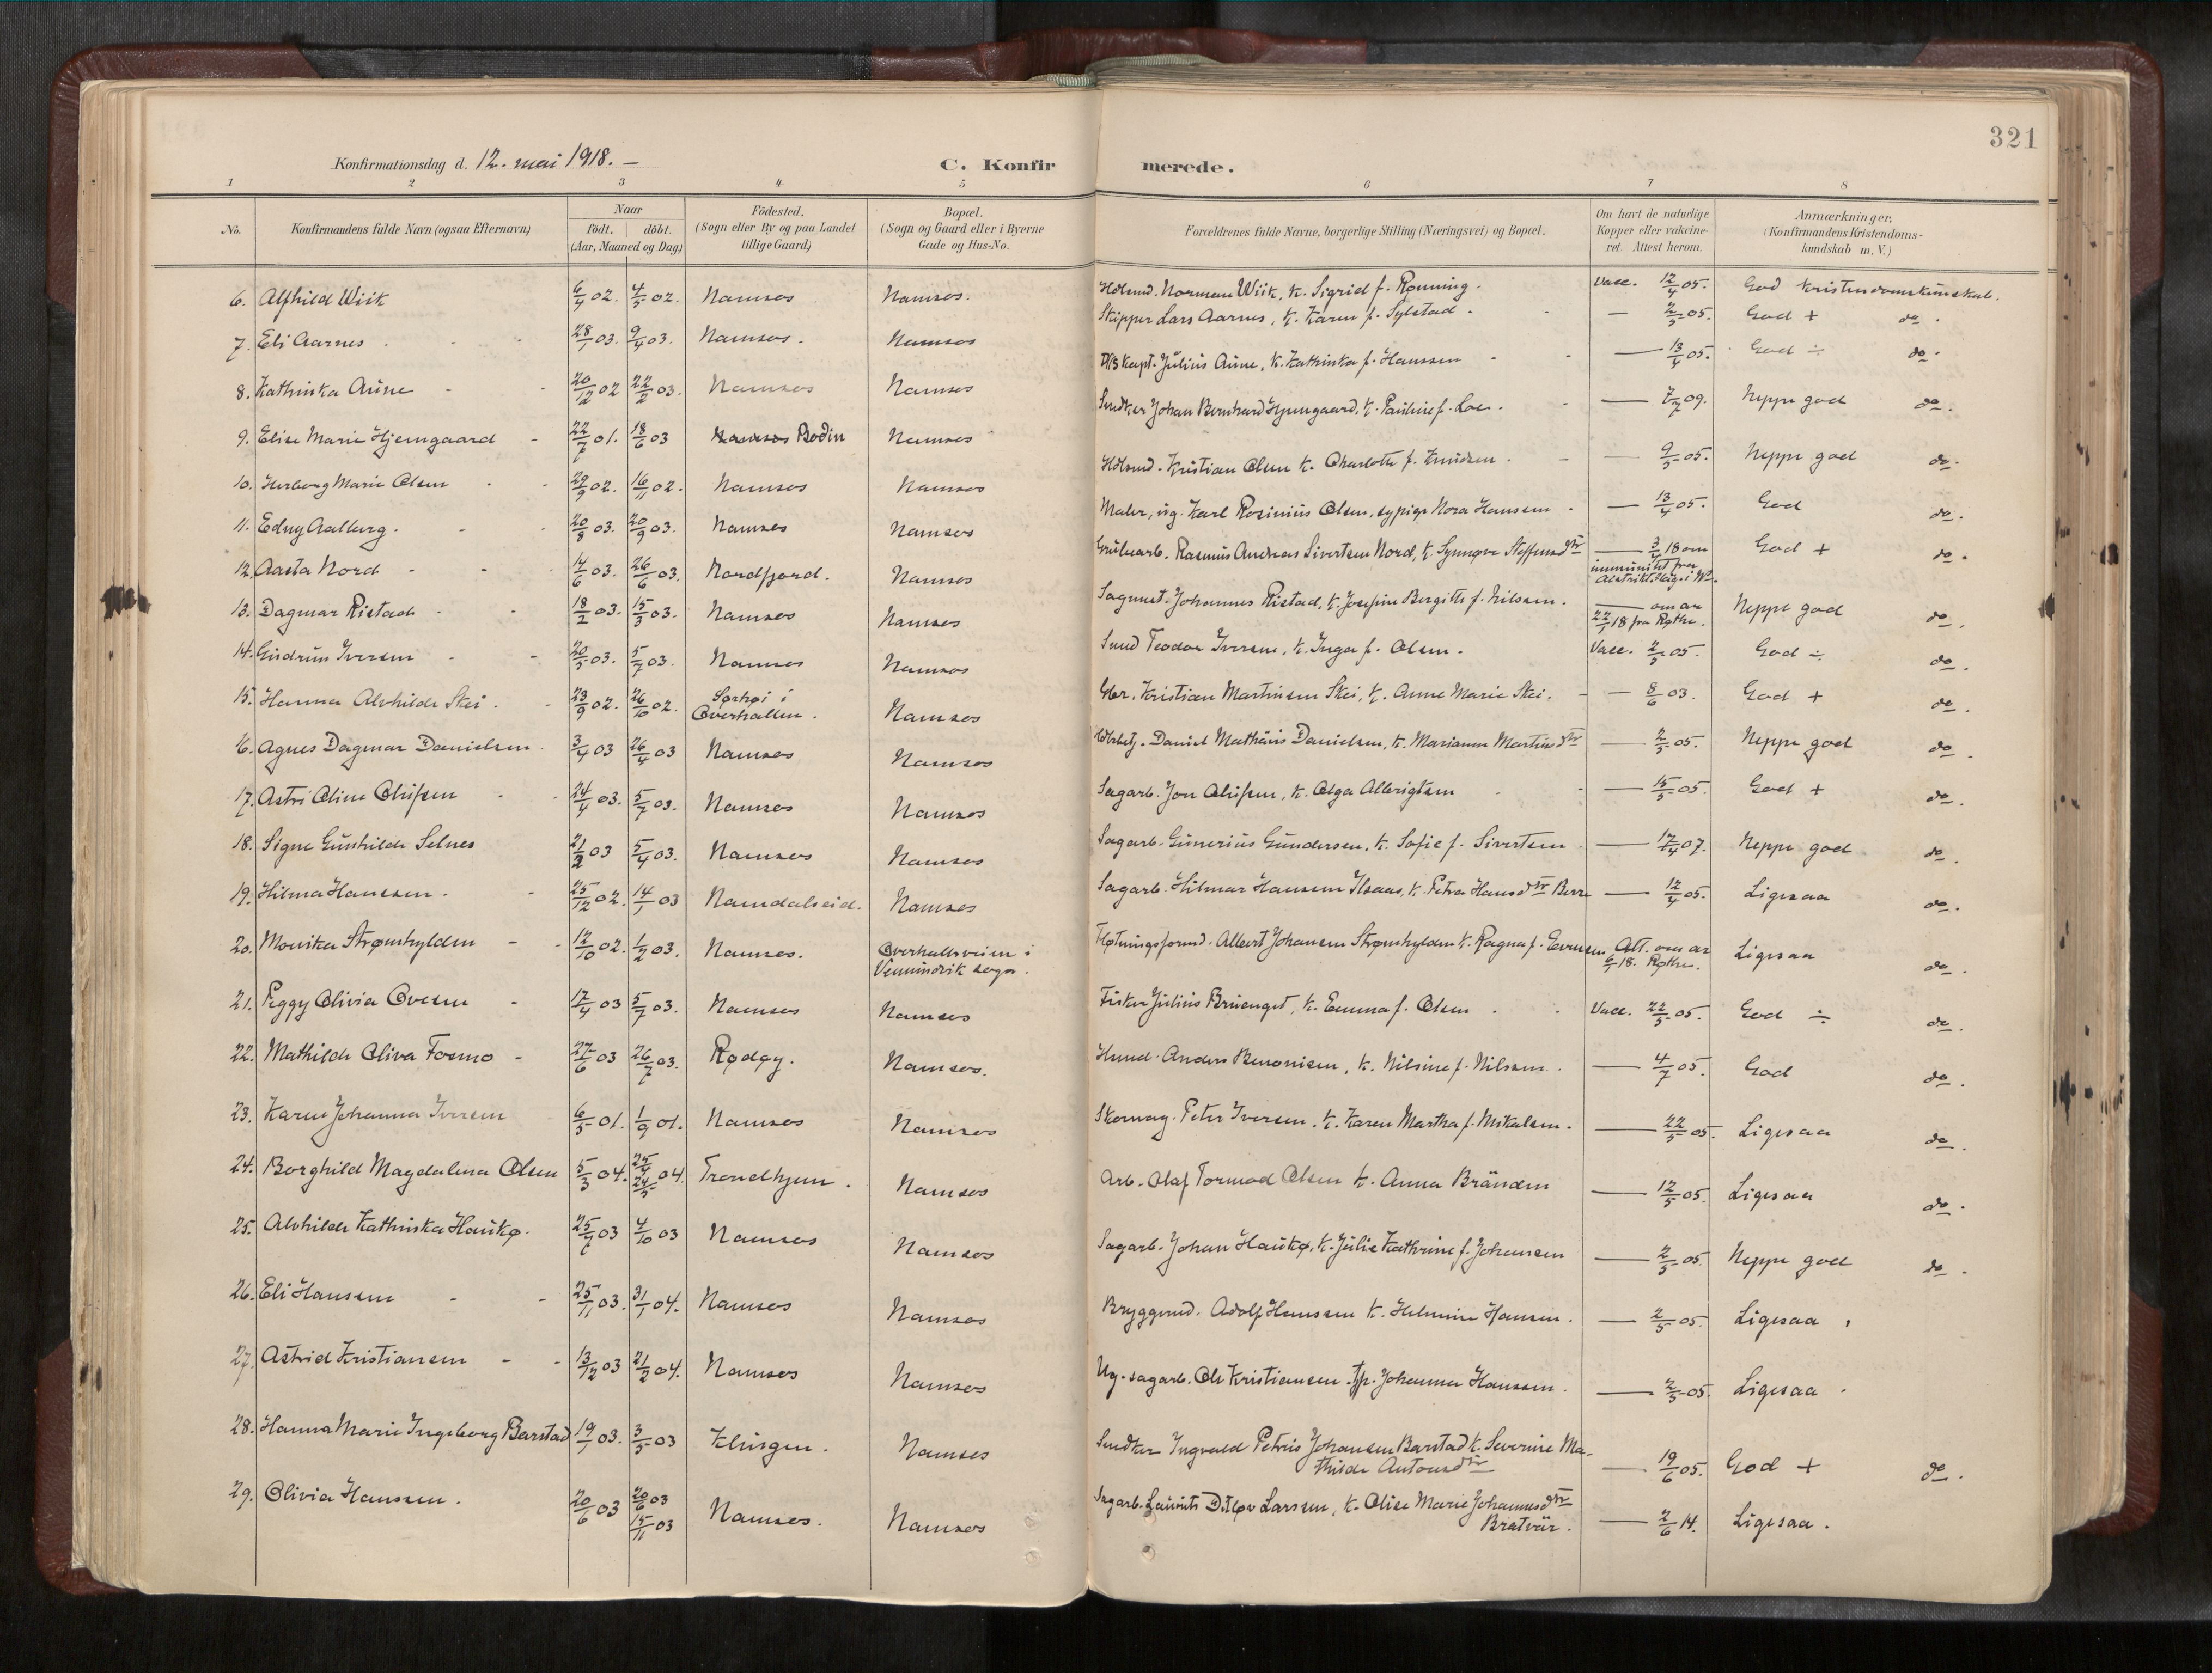 321
Konfirmationsdag d. 12. mai 1918. —
C. Konfirmerede.
1 2 3 4 5 6 7 8
No.
Konfirmandens fulde Navn (ogsaa Efternavn)
Naar
födt. döbt.
(Aar, Maaned og Dag)
Födested.
(Sogn eller By og paa Landet
tillige Gaard)
Bopæl.
(Sogn og Gaard eller i Byerne
Gade og Hus-No.
Forældrenes fulde Navne, borgerlige Stilling (Næringsvei) og Bopæl.
Om havt de naturlige
Kopper eller vakcine-
ret. Attest herom.
Anmærkninger,
(Konfirmandens Kristendoms-
kundskab m. V.)
6. Alfhild Wiik 6/4 02. 4/5 02. Namsos Namsos. Norman Wiik, k. Sigrid f. Rønning. Vacc. 12/4 05. God kristendomskunskab.
7. Eli Aarnes 28/1 03. 9/4 03. Namsos. Namsos Skipper Lars Aarnes, k. Karen f. Sylstad. — 2/5 05. God + do.
8. Kathinka Aune 20/12 02 22/2 03. Namsos Namsos D/S Kapt. Julius Aune, k. Kathinka f. Hanssen — 13/4 05. God ÷ do.
9. Elise Marie Hjemgaard 22/7 01. 18/6 03 Namsos Bodin Namsos Snedker Johan Bernhard Hjemgaard, k. Pauline f. Loe. — 7/7 09. Neppe god do.
10. Herborg Marie Olsen 29/9 02. 16/11 02. Namsos Namsos Kristian Olsen k. Charlotte f. Knudsen. — 9/5 05. Neppe god do.
11. Edny Aalberg. 20/8 03. 20/9 03. Namsos Namsos Maler, ug. Karl Rosinius Olsen, sypige Nora Hanssen — 13/4 05. God do.
12. Aasta Nord 14/6 03. 26/6 03. Nordfjord. Namsos Grubearb. Rasmus Andreas Sivertsen Nord, k. Synnøve Steffensdtr — 3/4 18 om
immunitet fra
God + do.
13. Dagmar Ristad 18/2 03. 15/3 03. Namsos Namsos Sagmest. Johannes Ristad, k. Josefine Bergitte f. Nilssen. — om ar
22/1 18 fra Røthe. Neppe god do.
14. Gudrun Iversen 20/5 03. 5/7 03. Namsos Namsos Smed Teodor Iversen, k. Inga f. Olsen. Vacc. 2/5 05. God ÷ do.
15. Hanna Alvhilde Skei. 23/9 02. 26/10 02. i
Overhallen. Namsos Gbr. Kristian Martinsen Skei, k. Anne Marie Skei. — 8/6 03. God + do.
16. Agnes Dagmar Danielsen 3/4 03 26/4 03 Namsos Namsos Daniel Mathäus Danielsen, k. Marianne Martinsdtr — 2/5 05. Neppe god do.
17. Astri Oline Olufsen 24/4 03. 5/7 03. Namsos Namsos Sagarb. Jon Olufsen, k. Olga Albrigtsen — 15/5 05. God + do.
18. Signe Gunhilde Selnes 21/2 03 5/4 03. Namsos Namsos Sagarb. Gunerius Gundersen, k. Sofie f. Sivertsen — 17/4 07. Neppe god do.
19. Hilma Hanssen. 25/12 02. 14/1 03 Namdalseid. Namsos Sagarb. Hilmar Hansen k. Petra Hansdtr Berre — 12/4 05. Ligesaa do.
20. Monika Strømhylden 12/10 02. 1/2 03. Namsos. Overhallsveien i
Vemundvik sogn. Fløtningsformd. Albert Johansen Strømhylden k. Ragna f. Evensen Att. om ar
6/1 18. Røthe. Ligesaa do.
21. Peggy Olivia Ovesen 17/4 03 5/7 03. Namsos Namsos Fisker Julius Bruenget, k. Emma f. Olsen. Vacc. 22/5 05. God ÷ do.
22. Mathilde Oliva Fosmo 27/6 03 26/7 03. Rødøy. Namsos. Anders Benonisen, k. Nilsine f. Nilssen. — 4/7 05. God do.
23. Karen Johanna Iversen 6/5 01. 1/9 01. Namsos Namsos Skomag. Peter Iversen. k. Karen Martha f. Mikalsen. — 22/5 05. Ligesaa do.
24. Borghild Magdalena Olsen 5/3 04. 25/4 24/5 04. Trondhjem. Namsos Arb. Olaf Tormod Olsen k. Anna Bränden — 12/5 05. Ligesaa do.
25. Alvhilde Kathinka Haukø. 25/7 03 4/10 03 Namsos Namsos Sagarb. Johan Haukø, k. Julie Kathrine f. Johansen — 2/5 05. Neppe god do.
26. Eli Hansen 25/11 03. 31/1 04. Namsos Namsos Bryggemd. Adolf Hanssen k. Helmine Hansen. — 2/5 05. Ligesaa.
27. Astrid Kristiansen 13/12 03 21/2 04. Namsos Namsos Ug. sagarb. Ole Kristiansen Tjp. Johanna Hanssen. — 2/5 05. Ligesaa.
28. Hanna Marie Ingeborg Barstad 19/1 03. 3/5 03 Klingen. Namsos Snedker Ingvald Petrus Johansen Barstad k. Severine Ma-
thilde Antonsdtr — 19/6 05. God + do.
29. Olivia Hanssen. 20/6 03 20/6 03 15/11 03 Namsos. Namsos Sagarb. Laurits Ditløv Larssen, k. Olise Marie Johannesdtr
Bratvär. — 2/6 14. Ligesaa.